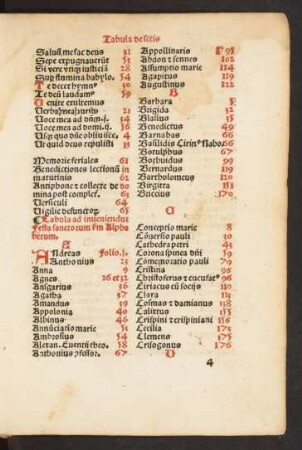 Tabula de sctis
Saluū me fac deus 31
Sepe expugnauerūt 53
Si vere vtiqꝫ iusticiā 28
Suꝑ flumina babylo. 54
Te decet hymn⁹ 30
Te deū laudam⁹ 59
Venite exultemus
Voce mea ad dn̄m.j. 34
Voce mea ad domi.ij. 56
Vsqꝫ quo dn̄e obliuisce. 4
Memorie feriales 61
Benedictiones lectionū in
matutinis 62
Antiphone ⁊ collecte de do
mina post complet̄. 63
Versiculi 64
Vigilie defunctoꝝ 65
Tabula ad inueniendū
festa sanctorum ẜm Alpha
betum.
A
Andreas Folio.j.
Anthonius 23
Anna 9
Agnes 26 et 32
Ansgarius 36
Agatha 37
Amandus 39
Appolonia 40
Albinus 46
Annūciatio marie 51
Ambrosius 54
Alexan. Euentꝰ theo. 58
Anthonius ꝯfessor. 67
Appollinaris 95
Abdon ⁊ sennes 102
Assumptio marie 114
Agapitus 119
Augustinus 122
B
Barbara 5
Brigida 32
Blasius 35
Benedictus 49
Barnabas 66
Basilidis Cirin⁹ Nabo. 66
Botulphus 67
Bernardus 119
Bartholomeus 120
Birgitta 151
Briccius 170
C
Conceptio marie 8
Cōuersio pauli 30
Cathedra petri 43
Corona spinea dn̄i 59
Cōmemoratio pauli 79
Cristina 96
Christoferus ⁊ cucufat⁹ 96
Ciriacus cū socijs 110
Clara 113
Cosmas ⁊ damianus 138
Calixtus 155
Crispini ⁊ crispiniani 156
Cecilia 173
Clemens 175
Crisogonus 176
D
4